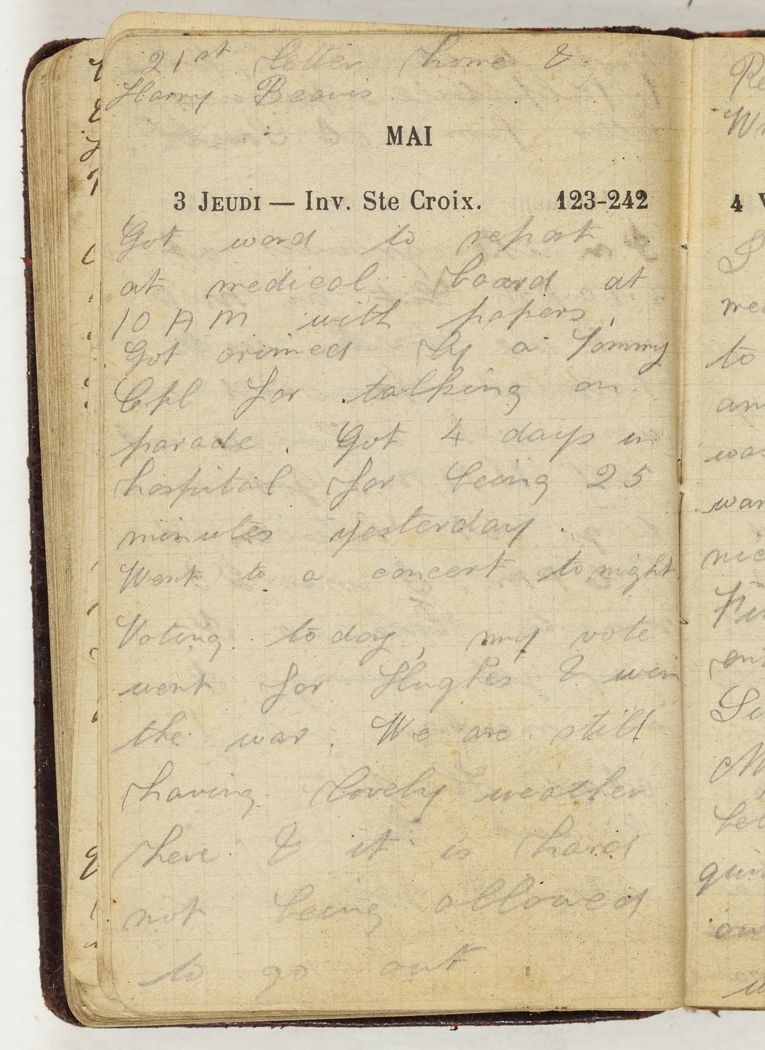 21st letter home &
Harry Beavis
MAI
3 JEUDI — Inv. Ste Croix. 123-242
Got word to report
at medical board at
10 A M with papers.
Got crimed by a Tommy
Cpl for talking on
parade. Got 4 days in
hospital for being 25
minutes yesterday.
Went to a concert to night
Voting to day, my vote
went for Hughes & win
the war. We are still
having lovely weather
here & it is hard
not being allowed
to go out.
4 V
to
an
was
nic